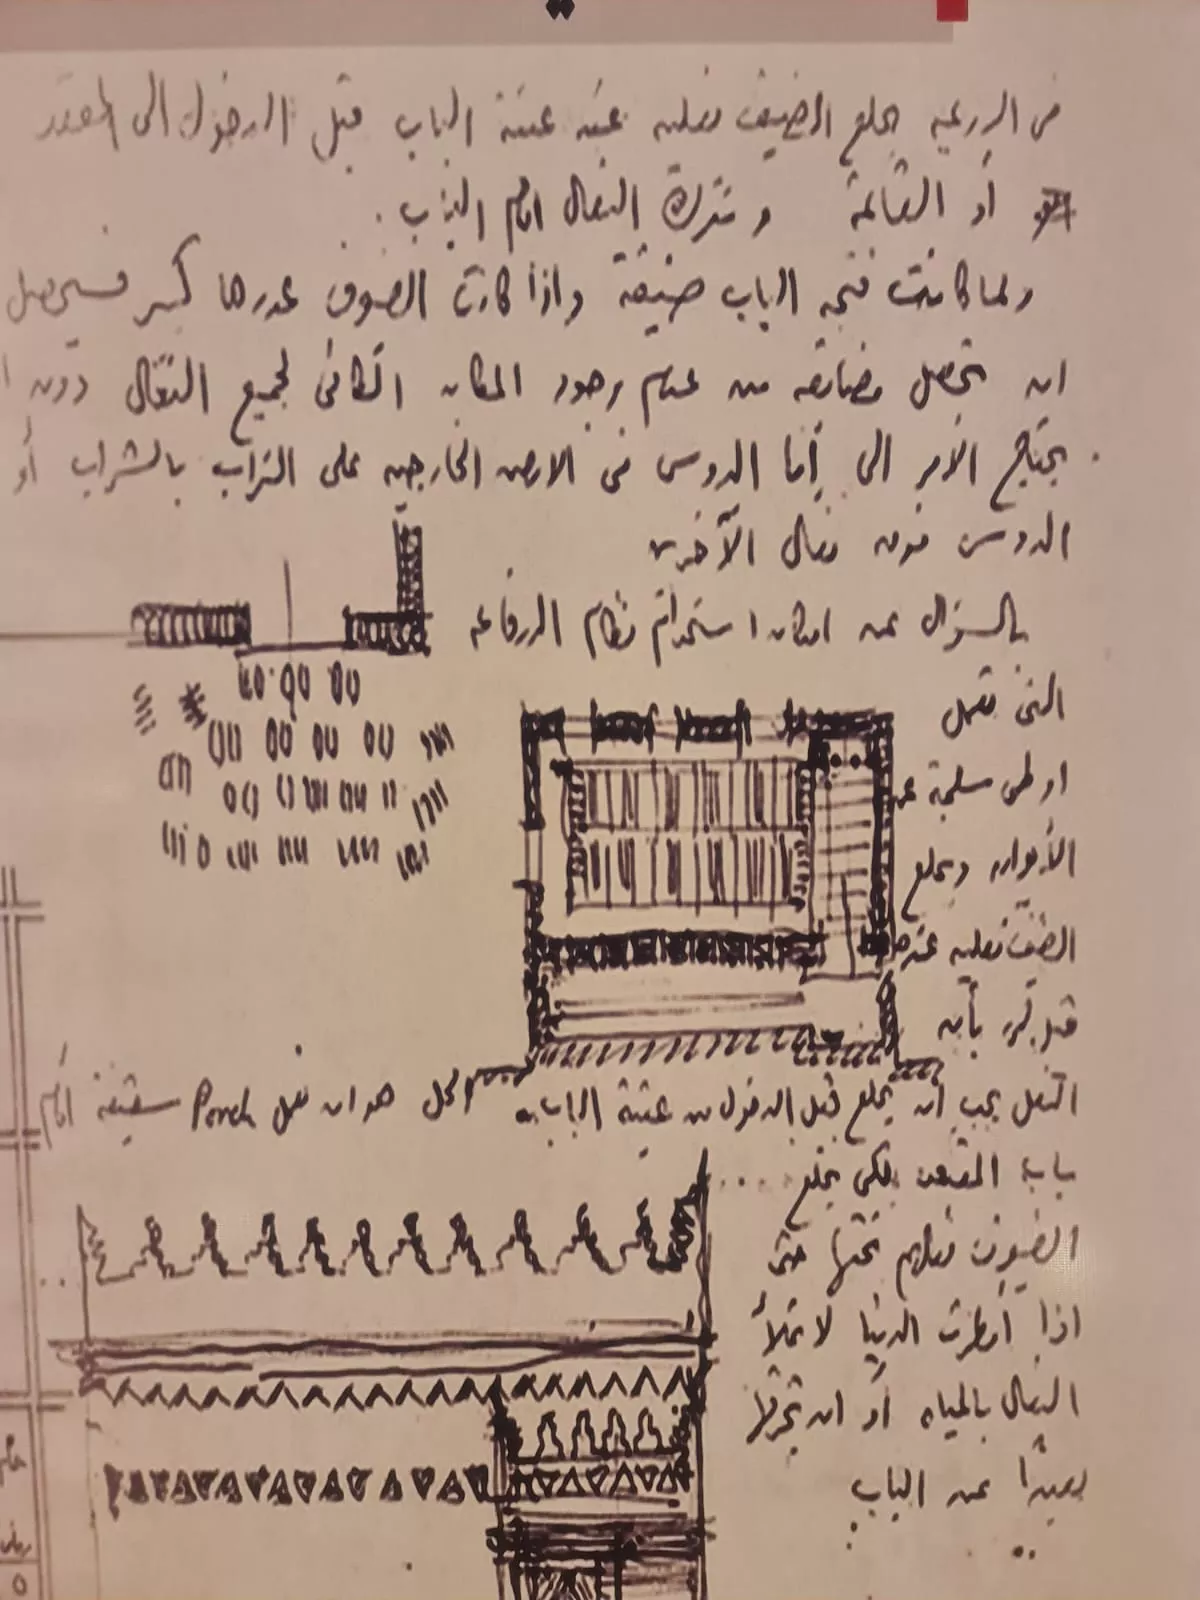 في الدرعية يخلع الضيف نعليه عند عتبة الباب قبل الدخول الى المقعد
أو القاعة وتترك النعال امام الباب .
ولما كانت فتحة الباب ضيقة واذا كانت الضيوف عددها كبير فسيحصل
ان تحصل مضايقه من عدم وجود المكان الكافي لجميع النعال دون
يحتاج الأمر الى إما الدوس في الارض الخارجيه على التراب بالشراب أو
الدوس فوق نعال الآخرين
بالسؤال عن امكان استخدام نظام الدرقاعه
التي تعمل
اوطى
الأيوان ويخلع
الضيف نعليه عندها
بأن
النعل يجب ان يخلع قبل الدخول من عتبة الباب والحل هو ان نعمل Porch سقيفة امام
باب المقعد لكي يخلع
الضيوف نعلاهم تحتها حتى
اذا أمطرت الدنيا لا تملأ
النعال بالمياه أو ان تجرفها
بعيداً عن الباب